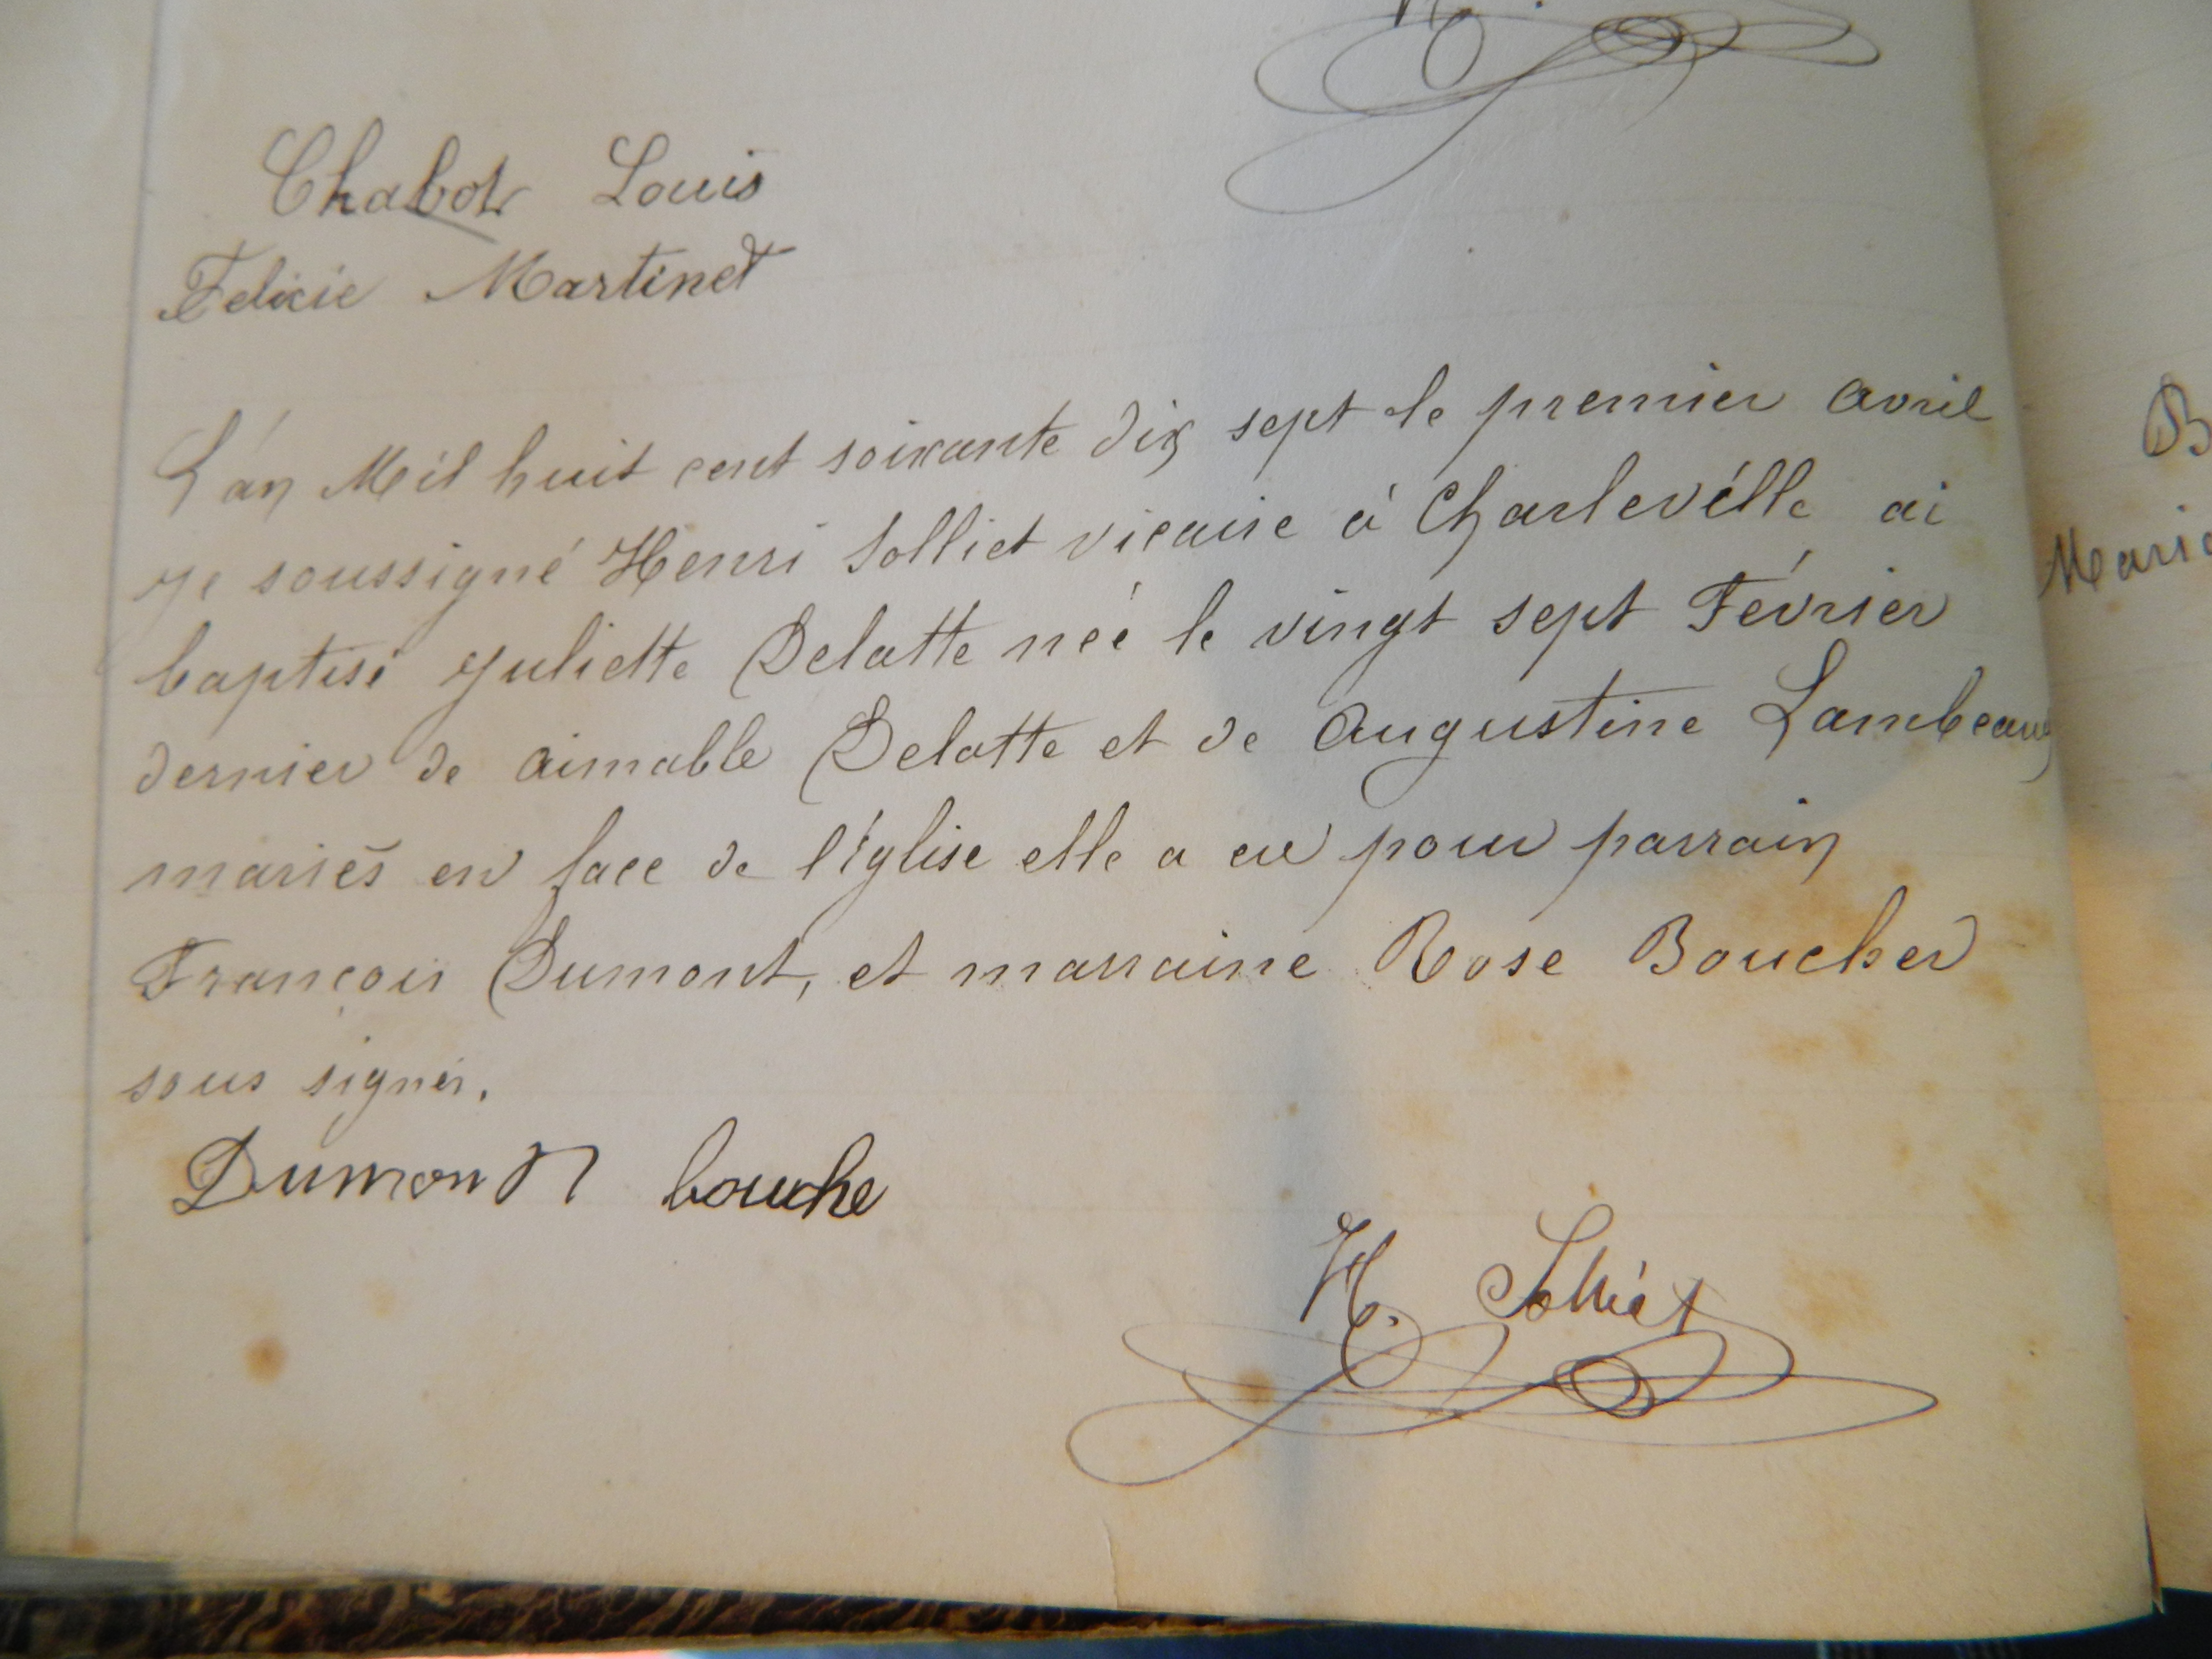 Chabot Louis
Felicie Martinet
L'an Mil huit cent soixante dix sept le premier avril
je soussigné Henri Solliet vicaire à Charleville ai
baptisé Juliette Delatte née le vingt sept Février
dernier de Aimable Delatte et de Augustine Lambeaux
mariés en face de l'église elle a eu pour parrain
François Dumont, et marraine Rose Boucher
sous signés.
Dumont bouche
H. Solliet
B
Marie